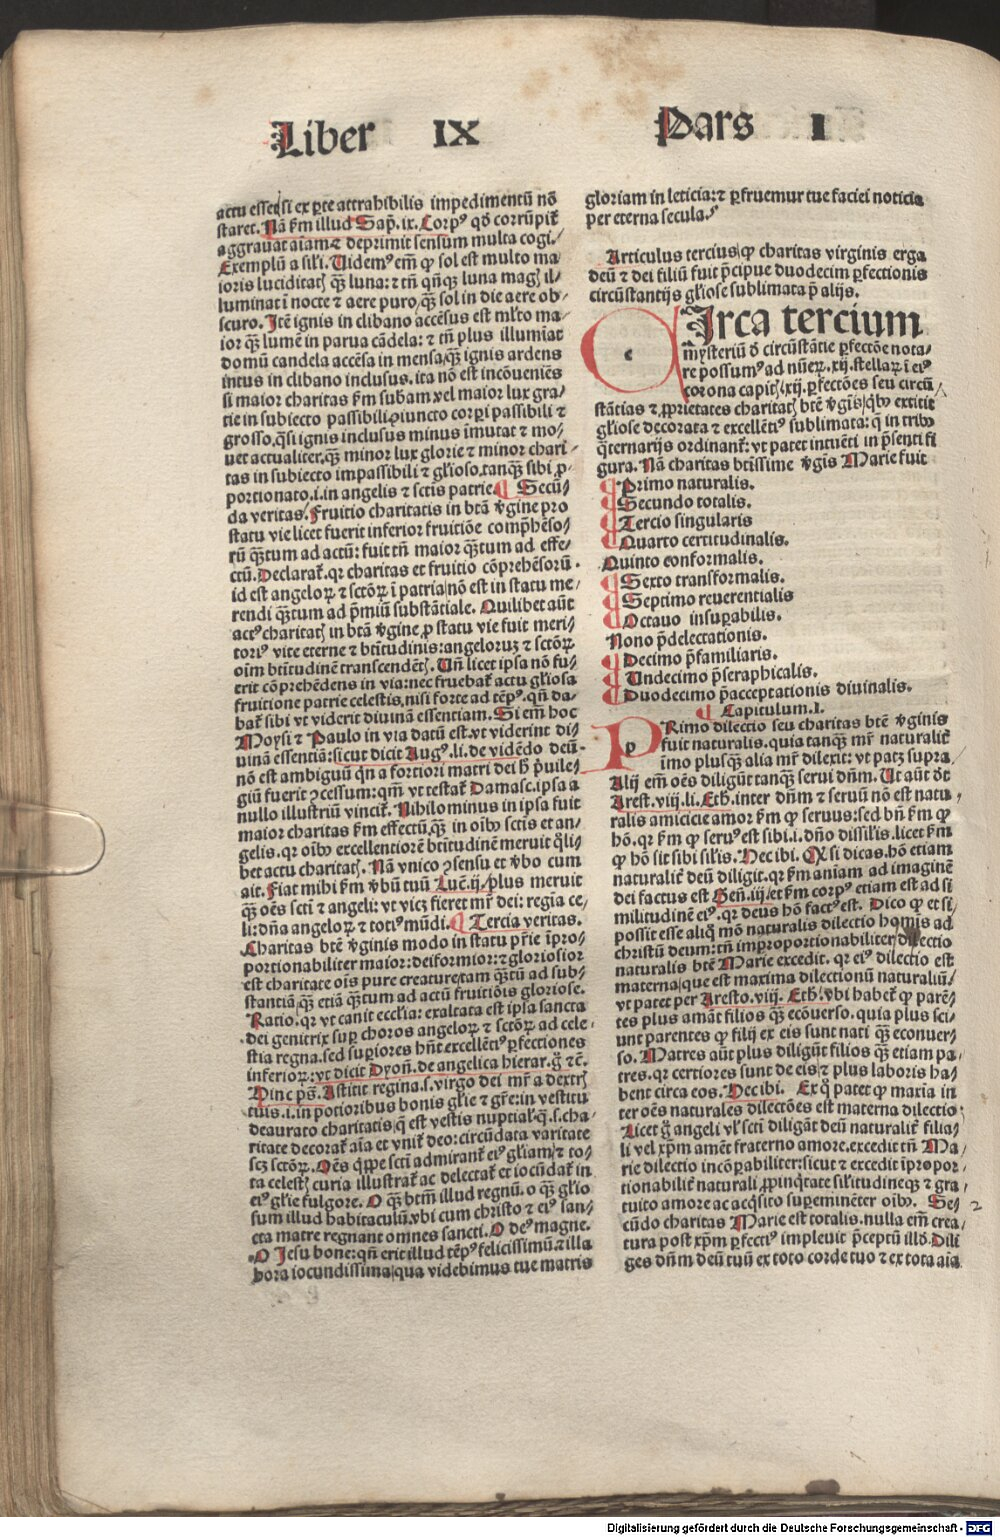 Liber IX Pars I
actu esset si ex ꝑte attrahibilis impedimentū nō
staret. Nā ẜm illud Sap̄. ix. Corpꝰ qḋ corrūpit̄
aggrauat aīam ⁊ deprimit sensum multa cogi.
Exemplū a sil'i. Uidemꝰ em̄ ꝙ sol est multo ma
ioris luciditatꝭ qȝ luna: ⁊ tn̄ qn̄qȝ luna magꝭ il-
luminat ī nocte ⁊ aere puro, qȝ sol in die aere ob-
scuro. Itē ignis in clibano accēsus est ml'to ma-
ior qȝ lumē in parua cādela: ⁊ tn̄ plus illumīat
domū candela accēsa in mensa, qȝ ignis ardens
intus in clibano inclusus. ita nō est incōueniēs
si maior charitas ẜm subam vel maior lux gra-
tie in subiecto passibili ꝯiuncto corpi passibili ⁊
grosso, q̄si ignis inclusus minus īmutat ⁊ mo-
uet actualiter, qȝ minor lux glorie ⁊ minor chari-
tas in subiecto impassibili ⁊ gl'ioso, tanqȝ sibi ꝓ-
portionato .i. in angelis ⁊ sctis patrie. ¶ Secū-
da veritas. Fruitio charitatis in btā ꝟgine pro
statu vie licet fuerit inferior fruitiōe comp̄hēso-
rū qȝtum ad actū: fuit tn̄ maior qȝtum ad effe-
ctū. Declarat̄. qr charitas et fruitio cōprehēsorū.
id est angeloꝝ ⁊ sctōꝝ ī patria, nō est in statu me-
rendi qȝtum ad p̄miū substātiale. Quilibet aūt
actꝰ charitatꝭ in btā ꝟgine ꝓ statu vie fuit meri-
toriꝰ vite eterne ⁊ btītudinis: angeloruȝ ⁊ sctōꝝ
oīm btītudinē transcendētꝭ. Un̄ licet ipsa nō fu-
erit cōprehēdens in via: nec fruebat̄ actu gl'iosa
fruitione patrie celestis, nisi forte ad tēpꝰ. qn̄ da-
bat̄ sibi vt viderit diuinā essentiam. Si em̄ hoc
Moysi ⁊ Paulo in via datū est. vt viderint di-
uinā essentiā: sicut dicit Aug. li. de vidēdo deū.
nō est ambiguū qn̄ a fortiori matri dei ħ p̄uile-
giū fuerit ꝯcessum: qm̄ vt testat̄ Damasc. ipsa a
nullo illustriū vincit̄. Nihilominus in ipsa fuit
maior charitas ẜm effectū, qȝ in oībꝰ sctis et an-
gelis. qr oībꝰ excellentiorē btītudinē meruit q̄li-
bet actu charitatꝭ. Nā vnico ꝯsensu et ꝟbo cum
ait. Fiat mihi ẜm ꝟbū tuū Luc̄. ij. plus meruit
qȝ oēs sctī ⁊ angeli: vt vicȝ fieret mr̄ dei: regia ce-
li: dn̄a angeloꝝ ⁊ totiꝰ mūdi. ¶ Tercia veritas.
Charitas btē ꝟginis modo in statu pr̄ie īpro-
portionabiliter maior: deiformior: ⁊ gloriosior
est charitate oīs pure creature, tam qȝtū ad sub-
stantiā, qȝ etiā qȝtum ad actū fruitiōis gloriose.
Ratio. qr vt canit eccl'ia: exaltata est ipsa sancta
dei genitrix sup choros angeloꝝ ⁊ sctōꝝ ad cele-
stia regna. sed supiores hn̄t excellētiꝰ ꝑfectiones
inferioꝝ: vt dicit Dyon̄. de angelica hierar. ḡ ⁊c̄.
Hinc ps̄. Astitit regina .s. virgo dei mr̄ a dextrꝭ
tuis .i. in potioribus bonis gl'ie ⁊ gr̄e: in vestitu
deaurato charitatis, q̄ est vestis nuptial'. q̄ .s. cha-
ritate decorat̄ aīa et vnit̄ deo: circūdata varitate
scȝ sctōꝝ. Oēs q̄ppe sctī admirant̄ eiꝰ gl'iam, ⁊ to-
ta celestꝭ curia illustrat̄ ac delectat̄ et iocūdat̄ in
eiꝰ gl'ie fulgore. O qȝ btm̄ illud regnū. o qȝ gl'io
sum illud habitaculū. vbi cum christo ⁊ eiꝰ san-
cta matre regnant omnes sancti. O deꝰ magne.
O Jesu bone: qn̄ erit illud tēpꝰ felicissimū ⁊ illa
hora iocundissima, qua videbimus tue matris
gloriam in leticia: ⁊ ꝑfruemur tue faciei noticia
per eterna secula.
Articulus tercius, ꝙ charitas virginis erga
deū ⁊ dei filiū fuit p̄cipue duodecim ꝑfectionis
circūstantijs gl'iose sublimata p̄ alijs.
c Irca tercium
mysteriū ḋ circūstātie ꝑfectōe nota-
re possumꝰ ad nūeꝝ. xij. stellaꝝ ī eiꝰ
corona capitꝭ, xij. ꝑfectōes seu circū
stātias ⁊ ꝓprietates charitatꝭ btē ꝟgīs, qbꝰ extitit
gl'iose decorata ⁊ excellētiꝰ sublimata: q̄ in tribꝰ
q̄ternarijs ordinant̄: vt patet intuēti in p̄senti fi
gura. Nā charitas btīssime ꝟgīs Marie fuit
¶ Primo naturalis.
¶ Secundo totalis.
¶ Tercio singularis
¶ Quarto certitudinalis.
Quinto conformalis.
¶ Sexto transformalis.
¶ Septimo reuerentialis
¶ Octauo insupabilis.
Nono p̄delectationis.
¶ Decimo p̄familiaris.
¶ Undecimo p̄seraphicalis.
¶ Duodecimo p̄acceptationis diuinalis.
¶ Capitulum. I.
p Rimo dilectio seu charitas btē ꝟginis
fuit naturalis. quia tanqȝ mr̄ naturalit̄
īmo plusqȝ alia mr̄ dilexit: vt patȝ supra.
Alij em̄ oēs diligūt tanqȝ serui dn̄m. Ut aūt ḋt
Arest. viij. li. Eth. inter dn̄m ⁊ seruū nō est natu-
ralis amicicie amor ẜm ꝙ seruus: sed bn̄ ẜm ꝙ
hō. qr ẜm ꝙ seruꝰ est sibi .i. dn̄o dissil'is. licet ẜm
ꝙ hō sit sibi sil'is. Hec ibi. Qꝫ si dicas. hō etiam
naturalit̄ deū diligit. qr ẜm aniam ad imaginē
dei factus est Gen̄. iij. et ẜm corpꝰ etiam est ad si
militudinē eiꝰ. qr deus hō factꝰ est. Dico ꝙ et si
possit esse aliq̄ mō naturalis dilectio homīs ad
christū deum: tn̄ improportionabiliter dilectio
naturalis btē Marie excedit. qr eiꝰ dilectio est
materna, que est maxima dilectionū naturaliū,
vt patet per Aresto. viij. Eth. vbi habet̄ ꝙ parē-
tes plus amāt filios qȝ ecōuerso. quia plus sci-
unt parentes ꝙ filij ex eis sunt nati qȝ econuer-
so. Matres aūt plus diligūt filios qȝ etiam pa-
tres. qr certiores sunt de eis, ⁊ plus laboris ha-
bent circa eos. Hec ibi. Ex q̄ patet ꝙ maxīa in
ter oēs naturales dilectōes est materna dilectio:
Licet ḡ angeli vl' sctī diligāt deū naturalit̄ filia-
li vel xp̄m amēt fraterno amore. excedit tn̄ Ma-
rie dilectio incōpabiliter: sicut ⁊ excedit īpropor-
tionabilit̄ naturali ꝓpinq̄tate sil'itudineqȝ ⁊ gra-
tuito amore ac acq̄sito supeminēter oībꝰ. Se-
cūdo charitas Marie est totalis. nulla em̄ crea-
tura post xp̄m ꝑfectiꝰ impleuit p̄ceptū illḋ. Dili
ges dn̄m deū tuū ex toto corde tuo ⁊ ex tota aīa
2
Digitalisierung gefördert durch die Deutsche Forschungsgemeinschaft - DFG